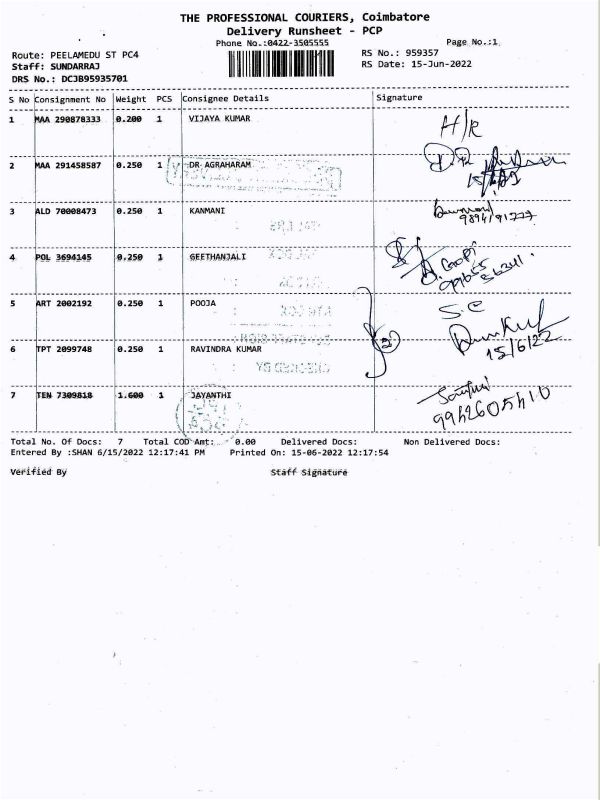 THE PROFESSIONAL COURIERS, Coimbatore
Delivery Runsheet - PCP
Phone No.:0422-3505555
Page No.:1
Route: PEELAMEDU ST PC4
RS No.: 959357
Staff: SUNDARRAJ
RS Date: 15-Jun-2022
DRS No.: DCJB95935701
S No Consignment No Weight PCS Consignee Details Signature
1 MAA 290878333 0.200 1 VIJAYA KUMAR H/R
2 MAA 291458587 0.250 1 DR AGRAHARAM
3 ALD 70008473 0.250 1 KANMANI
4 POL 3694145 0.250 1 GEETHANJALI Gopi
5 ART 2002192 0.250 1 POOJA S.C
6 TPT 2099748 0.250 1 RAVINDRA KUMAR 2
15/6/22
7 TEN 7309818 1.600 1 JAYANTHI
9942605410
Total No. Of Docs: 7 Total COD Amt: 0.00 Delivered Docs: Non Delivered Docs:
Entered By :SHAN 6/15/2022 12:17:41 PM Printed On: 15-06-2022 12:17:54
Verified By Staff Signature